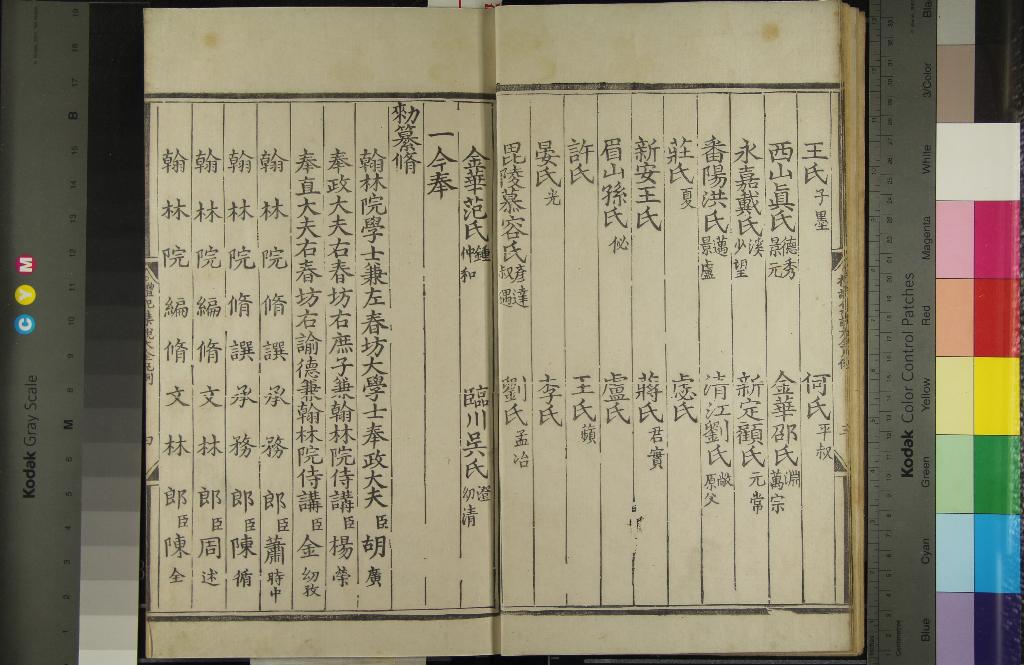 王氏子墨 何氏平叔
西山眞氏德秀景元 金華邵氏淵萬宗
永嘉戴氏溪少望 新定顧氏元常
番陽洪氏邁景盧 清江劉氏敞原父
莊氏夏 宓氏
新安王氏 蔣氏君實
眉山孫氏佖 盧氏
許氏 王氏蘋
晏氏光 李氏
毘陵慕容氏彥達叔遇 劉氏孟冶
金華范氏鍾仲和 臨川吳氏澄幼清
一今奉
勑纂脩
翰林院學士兼左春坊大學士奉政大夫臣胡廣
奉政大夫右春坊右庶子兼翰林院侍講臣楊榮
奉直大夫右春坊右諭德兼翰林院侍講臣金幼孜
翰林院脩譔承務郎臣蕭時中
翰林院脩譔承務郎臣陳循
翰林院編脩文林郎臣周述
翰林院編脩文林郎臣陳全
Kodak Gray Scale
C Y M
Kodak Color Control Patches
Blue
Cyan
Green
Yellow
Red
Magenta
White
3/Color
Bla